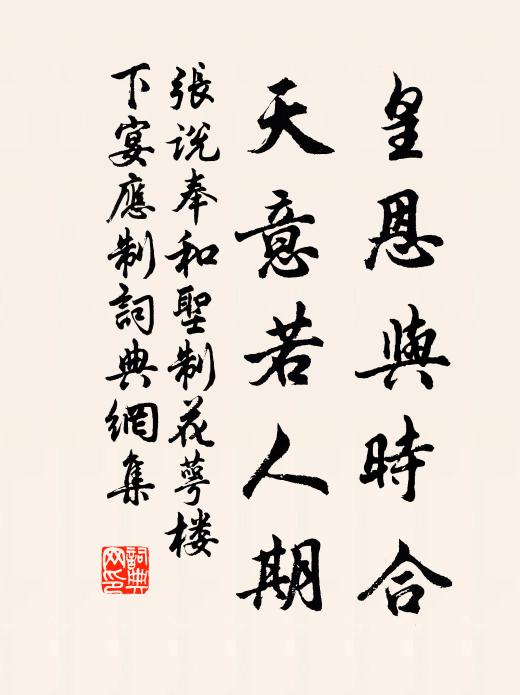 皇恩與時合
天意若人期
張說奉和聖制花萼楼
下宴應制詞典網集
詞典网印